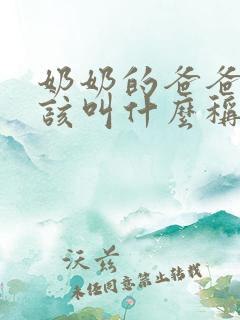 奶奶的爸爸
该叫什麼称
沃兹
未经同意禁止转载